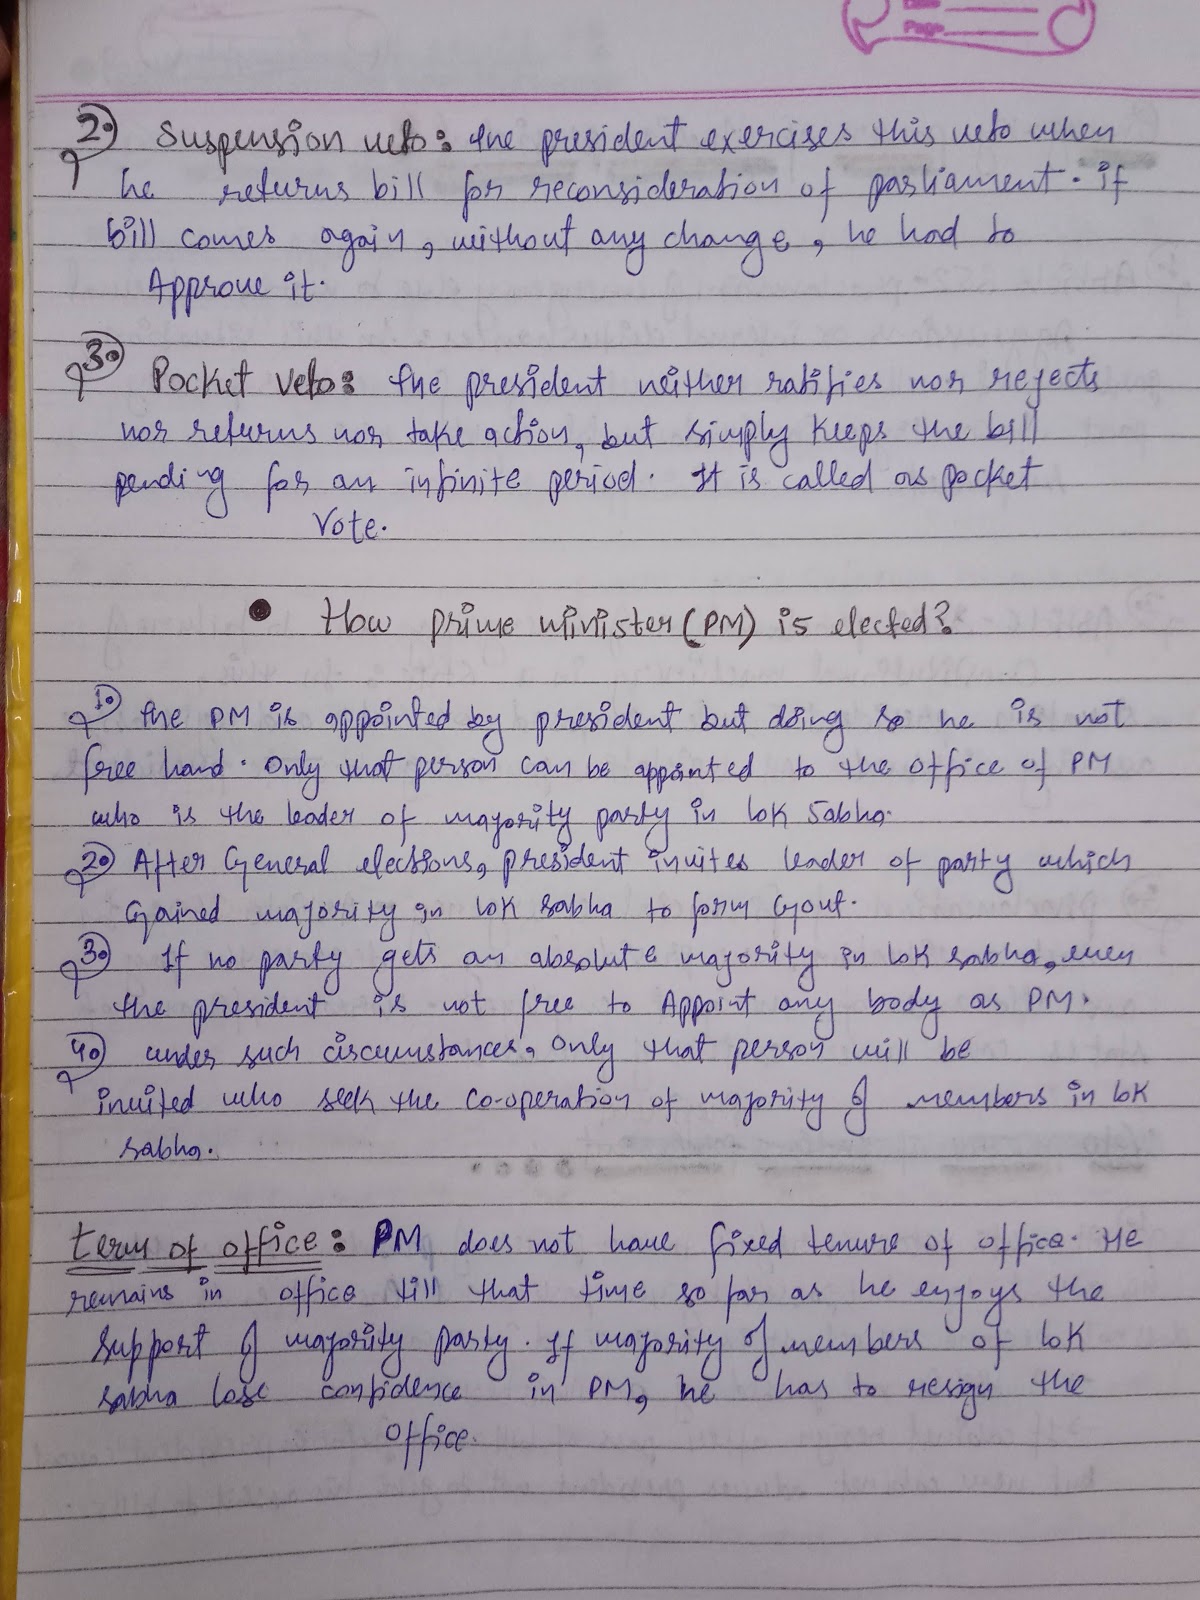 Page
2. Suspension veto: the president exercises this veto when
he returns bill for reconsideration of parliament. if
bill comes again, without any change, he had to
Approve it.
3. Pocket veto: the president neither ratifies nor rejects
nor returns nor take action, but simply keeps the bill
pending for an infinite period. It is called as pocket
Vote.
• How prime minister (PM) is elected?
1. the PM is appointed by president but doing so he is not
free hand. Only that person can be appointed to the office of PM
who is the leader of majority party in lok Sabha.
2. After General elections, president invites leader of party which
Gained majority in lok sabha to form Govt.
3. If no party gets an absolute majority in lok sabha, even
the president is not free to Appoint any body as PM.
4. under such circumstances, only that person will be
invited who seek the co-operation of majority of members in lok
sabha.
term of office: PM does not have fixed tenure of office. He
remains in office till that time so far as he enjoys the
support of majority party. If majority of members of lok
sabha lose confidence in PM, he has to resign the
office.